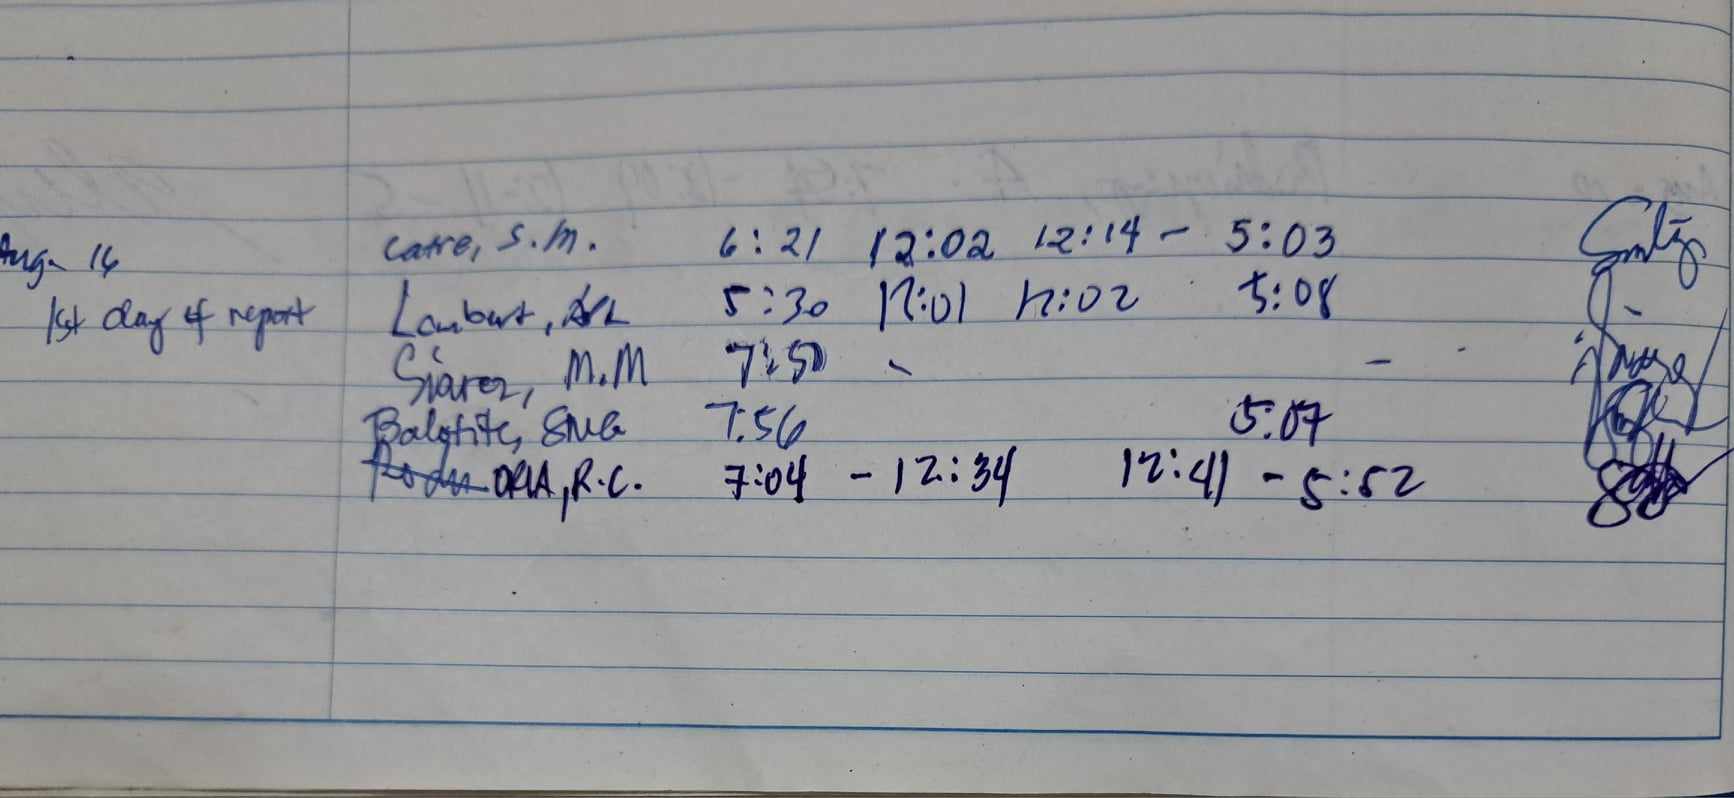 Aug. 16 Catre, S.M. 6:21 12:02 12:14 - 5:03
1st day of report Lambert, 5:30 12:01 12:02 5:08
Siarez, M.M 7:50 - -
Balatite, 7:56 5:07
ORIA, R.C. 7:04 - 12:34 12:41 - 5:52